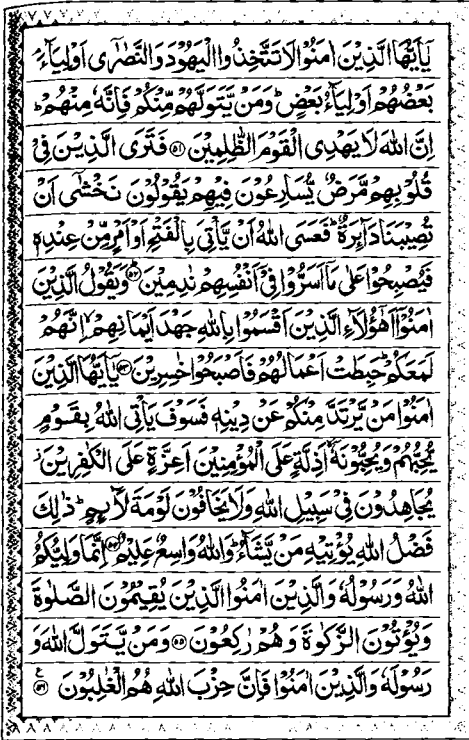 يٰٓاَيُّهَا الَّذِيْنَ اٰمَنُوْا لَا تَتَّخِذُوا الْيَهُوْدَ وَالنَّصٰرٰٓى اَوْلِيَآءَ ۘ
بَعْضُهُمْ اَوْلِيَآءُ بَعْضٍ ؕ وَمَنْ يَّتَوَلَّهُمْ مِّنْكُمْ فَاِنَّهٗ مِنْهُمْ ؕ
اِنَّ اللّٰهَ لَا يَهْدِى الْقَوْمَ الظّٰلِمِيْنَ ﴿۵۱﴾ فَتَرَى الَّذِيْنَ فِىْ
قُلُوْبِهِمْ مَّرَضٌ يُّسَارِعُوْنَ فِيْهِمْ يَقُوْلُوْنَ نَخْشٰٓى اَنْ
تُصِيْبَنَا دَآئِرَةٌ ؕ فَعَسَى اللّٰهُ اَنْ يَّاْتِىَ بِالْفَتْحِ اَوْ اَمْرٍ مِّنْ عِنْدِهٖ
فَيُصْبِحُوْا عَلٰى مَاۤ اَسَرُّوْا فِىْۤ اَنْفُسِهِمْ نٰدِمِيْنَ ﴿۵۲﴾ وَيَقُوْلُ الَّذِيْنَ
اٰمَنُوْۤا اَهٰٓؤُلَآءِ الَّذِيْنَ اَقْسَمُوْا بِاللّٰهِ جَهْدَ اَيْمَانِهِمْ ۙ اِنَّهُمْ
لَمَعَكُمْ ؕ حَبِطَتْ اَعْمَالُهُمْ فَاَصْبَحُوْا خٰسِرِيْنَ ﴿۵۳﴾ يٰٓاَيُّهَا الَّذِيْنَ
اٰمَنُوْا مَنْ يَّرْتَدَّ مِنْكُمْ عَنْ دِيْنِهٖ فَسَوْفَ يَاْتِى اللّٰهُ بِقَوْمٍ
يُّحِبُّهُمْ وَيُحِبُّوْنَهٗۤ ۙ اَذِلَّةٍ عَلَى الْمُؤْمِنِيْنَ اَعِزَّةٍ عَلَى الْكٰفِرِيْنَ ۫
يُجَاهِدُوْنَ فِىْ سَبِيْلِ اللّٰهِ وَلَا يَخَافُوْنَ لَوْمَةَ لَآئِمٍ ؕ ذٰلِكَ
فَضْلُ اللّٰهِ يُؤْتِيْهِ مَنْ يَّشَآءُ ؕ وَاللّٰهُ وَاسِعٌ عَلِيْمٌ ﴿۵۴﴾ اِنَّمَا وَلِيُّكُمُ
اللّٰهُ وَرَسُوْلُهٗ وَالَّذِيْنَ اٰمَنُوا الَّذِيْنَ يُقِيْمُوْنَ الصَّلٰوةَ
وَيُؤْتُوْنَ الزَّكٰوةَ وَهُمْ رٰكِعُوْنَ ﴿۵۵﴾ وَمَنْ يَّتَوَلَّ اللّٰهَ وَ
رَسُوْلَهٗ وَالَّذِيْنَ اٰمَنُوْا فَاِنَّ حِزْبَ اللّٰهِ هُمُ الْغٰلِبُوْنَ ﴿۵۶﴾ ع